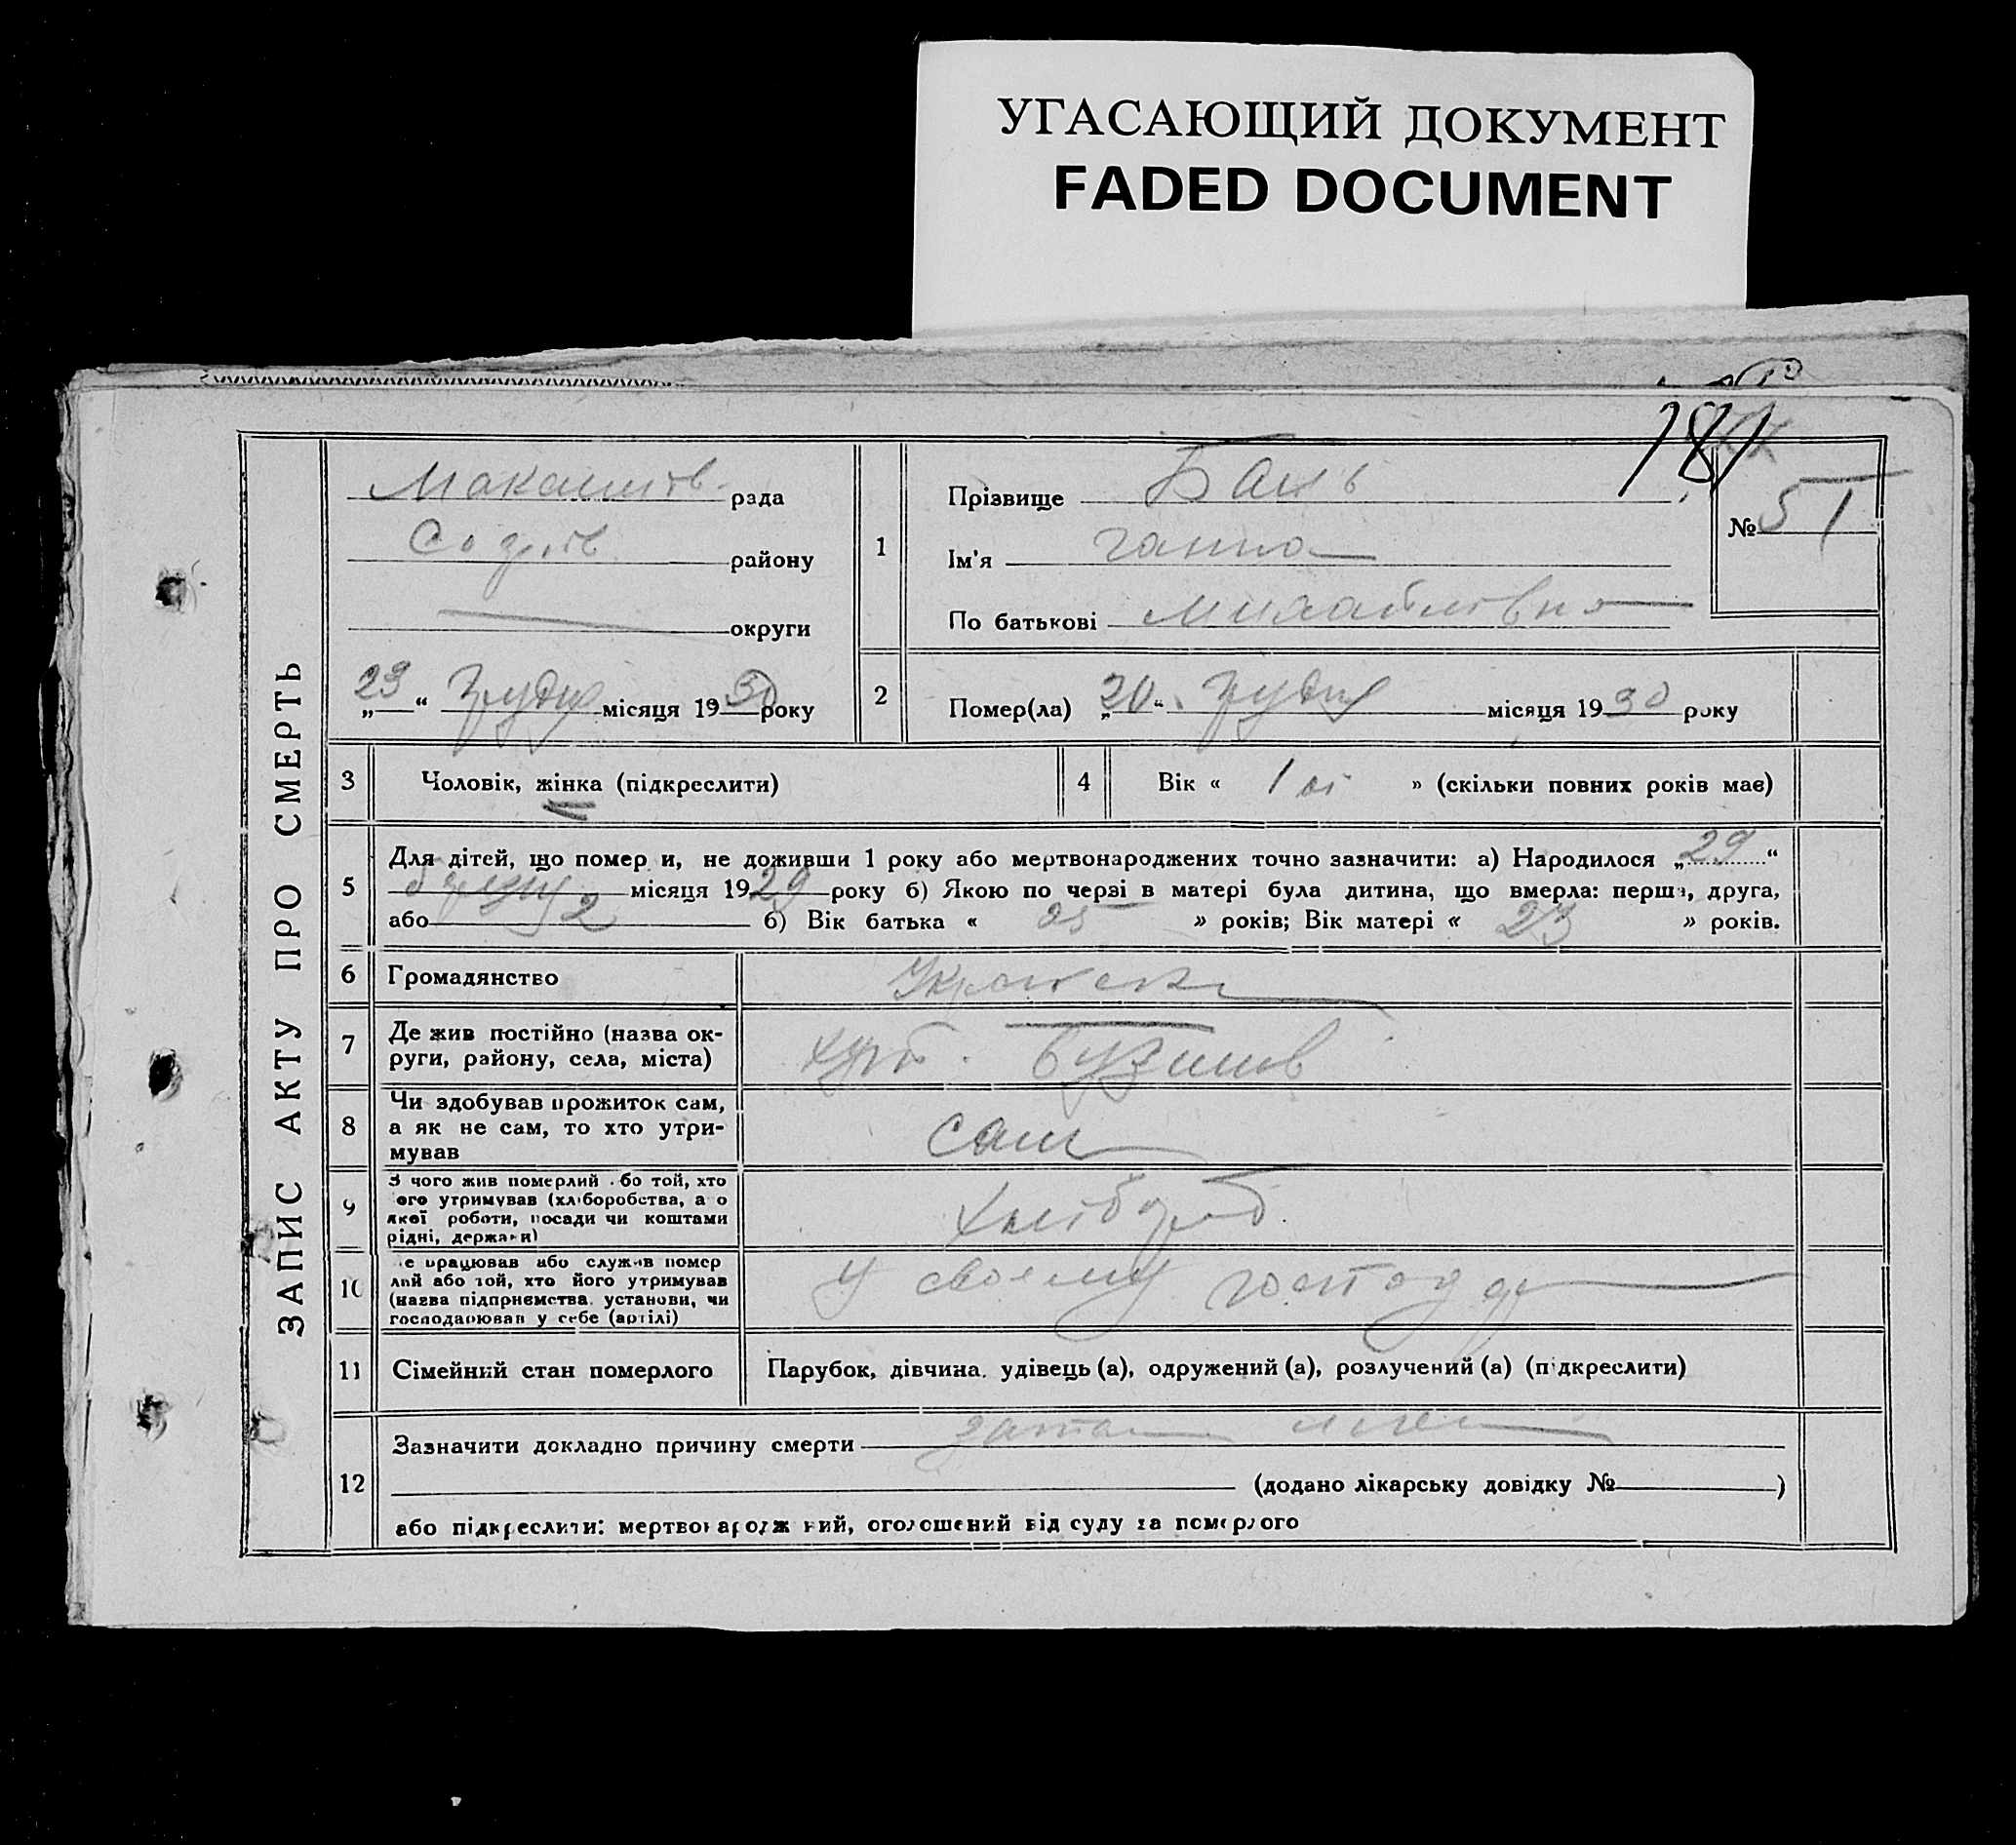 УГАСАЮЩИЙ ДОКУМЕНТ
FADED DOCUMENT
181
ЗАПИС АКТУ ПРО СМЕРТЬ
рада
району
округи
„23“ Грудня місяця 1930 року
1
Прізвище Бань
Ім'я Ганна
По батькові Михайлівна
№ 51
2
Помер(ла) „20“ Грудня місяця 1930 року
3
Чоловік, жінка (підкреслити)
4
Вік « 1 » (скільки повних років має)
5
Для дітей, що помер и, не доживши 1 року або мертвонароджених точно зазначити: а) Народилося „29“
місяця 1929 року б) Якою по черзі в матері була дитина, що вмерла: перша, друга,
або 2 б) Вік батька « 25 » років; Вік матері « 23 » років.
6
Громадянство
7
Де жив постійно (назва ок-
руги, району, села, міста)
хут.
8
Чи здобував прожиток сам,
а як не сам, то хто утри-
мував
сам
9
З чого жив померлий або той, хто
його утримував (хліборобства, а о
якої роботи, посади чи коштами
рідні, держави)
Хлібороб
10
е працював або служив помер
лий або той, хто його утримував
(назва підприємства, установи, чи
господарював у себе (артілі)
У своєму господар
11
Сімейний стан померлого
Парубок, дівчина, удівець (а), одружений (а), розлучений (а) (підкреслити)
12
Зазначити докладно причину смерти
(додано лікарську довідку № )
або підкреслити: мертвонароджений, оголошений від суду за померлого